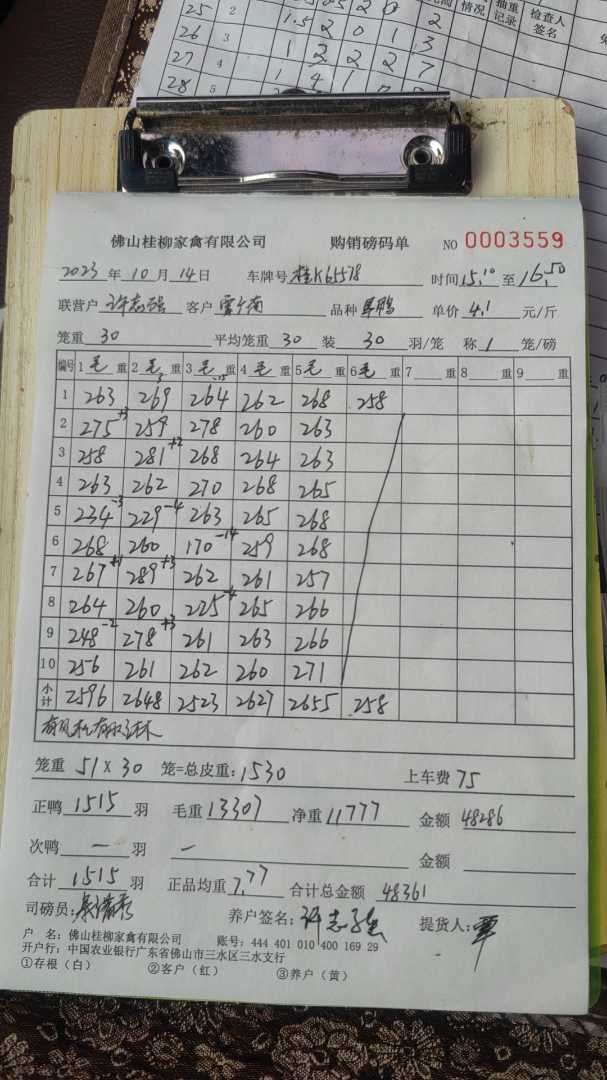 25 2 2 0 2
26 3 1.5 2 0 1 3
27 4 1 3 2 2 7
28 5 1 4 1
情况 抽重记录 检查人签名
佛山桂柳家禽有限公司 购销磅码单 NO 0003559
2023年10月14日 车牌号 桂K65578 时间15.10至16.50
联营户 许志强 客户 品种 单价 4.1 元/斤
笼重 30 平均笼重 30 装 30 羽/笼 称 1 笼/磅
编号 1毛重 2毛重 3毛重 4毛重 5毛重 6毛重 7 重 8 重 9 重
1 263 269 264 262 268 258
2 275+3 259 278 260 263
3 258 281+2 268 264 263
4 263 262 270 268 265
5 234-3 229-4 263 265 268
6 268 260 170-14 259 268
7 267+1 289+3 262 261 257
8 264 260 225-4 265 266
9 248-2 278+3 261 263 266
10 256 261 262 260 271
小计 2596 2648 2523 2627 2655 258
笼重 51×30 笼=总皮重:1530 上车费 75
正鸭 1515 羽 毛重 13307 净重 11777 金额 48286
次鸭 一 羽 一 金额
合计 1515 羽 正品均重 7.77 合计总金额 48361
司磅员: 养户签名:许志强 提货人:覃
户 名:佛山桂柳家禽有限公司 账号:444 401 010 400 169 29
开户行:中国农业银行广东省佛山市三水区三水支行
①存根(白) ②客户(红) ③养户(黄)